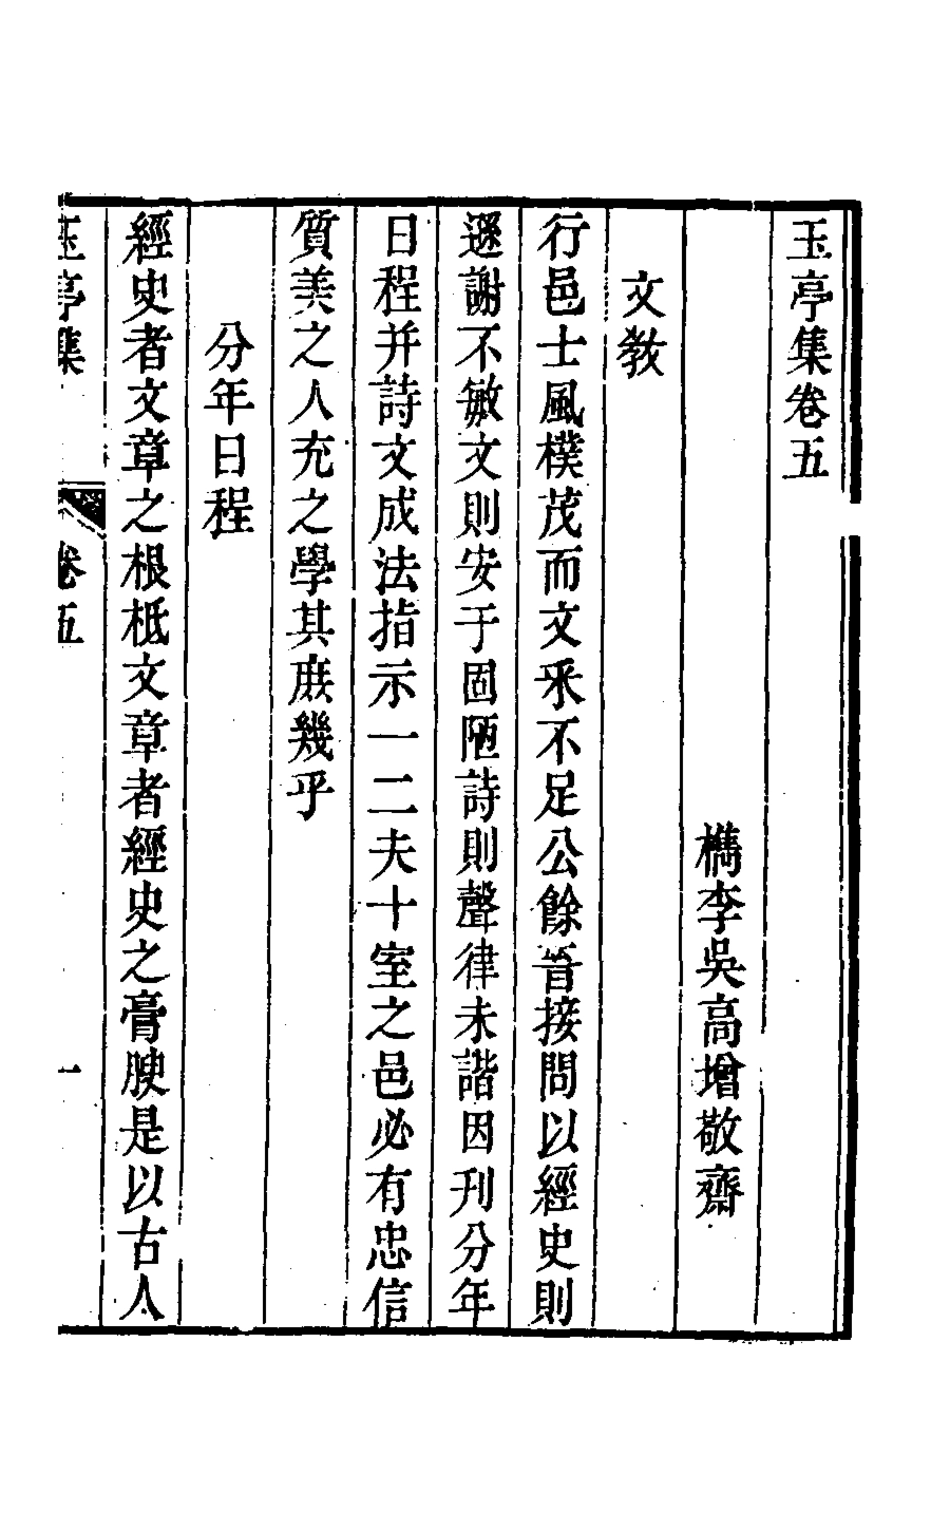 玉亭集卷五
檇李吳高增敬齋
文教
行邑士風樸茂而文釆不足公餘晉接問以經史則
遜謝不敏文則安于固陋詩則聲律未諧因刋分年
日程并詩文成法指示一二夫十室之邑必有忠信
質美之人充之學其庶幾乎
分年日程
經史者文章之根柢文章者經史之膏腴是以古人
玉亭集 卷五 一